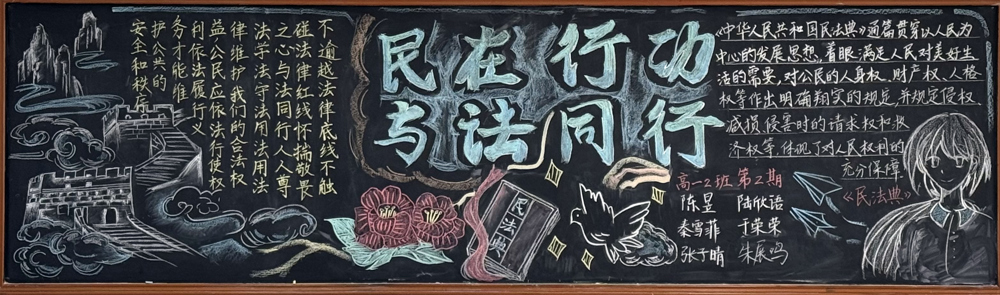 不逾越法律底线不触
碰法律红线怀揣敬畏
之心与法同行人人尊
法学法守法用法用法
律维护我们的合法权
益公民应依法行使权
利依法履行义
务才能维
护公共的
安全和秩序
民在行功
与法同行
民法典
《中华人民共和国民法典》通篇贯穿以人民为
中心的发展思想,着眼满足人民对美好生
活的需要,对公民的人身权、财产权、人格
权等作出明确翔实的规定,并规定侵权、
减损、侵害时的请求权和
济权等,体现了对人民权利的
充分保障
《民法典》
高一2班 第2期
陈昱 陆欣语
秦雪菲 于荣荣
张子晴 朱辰